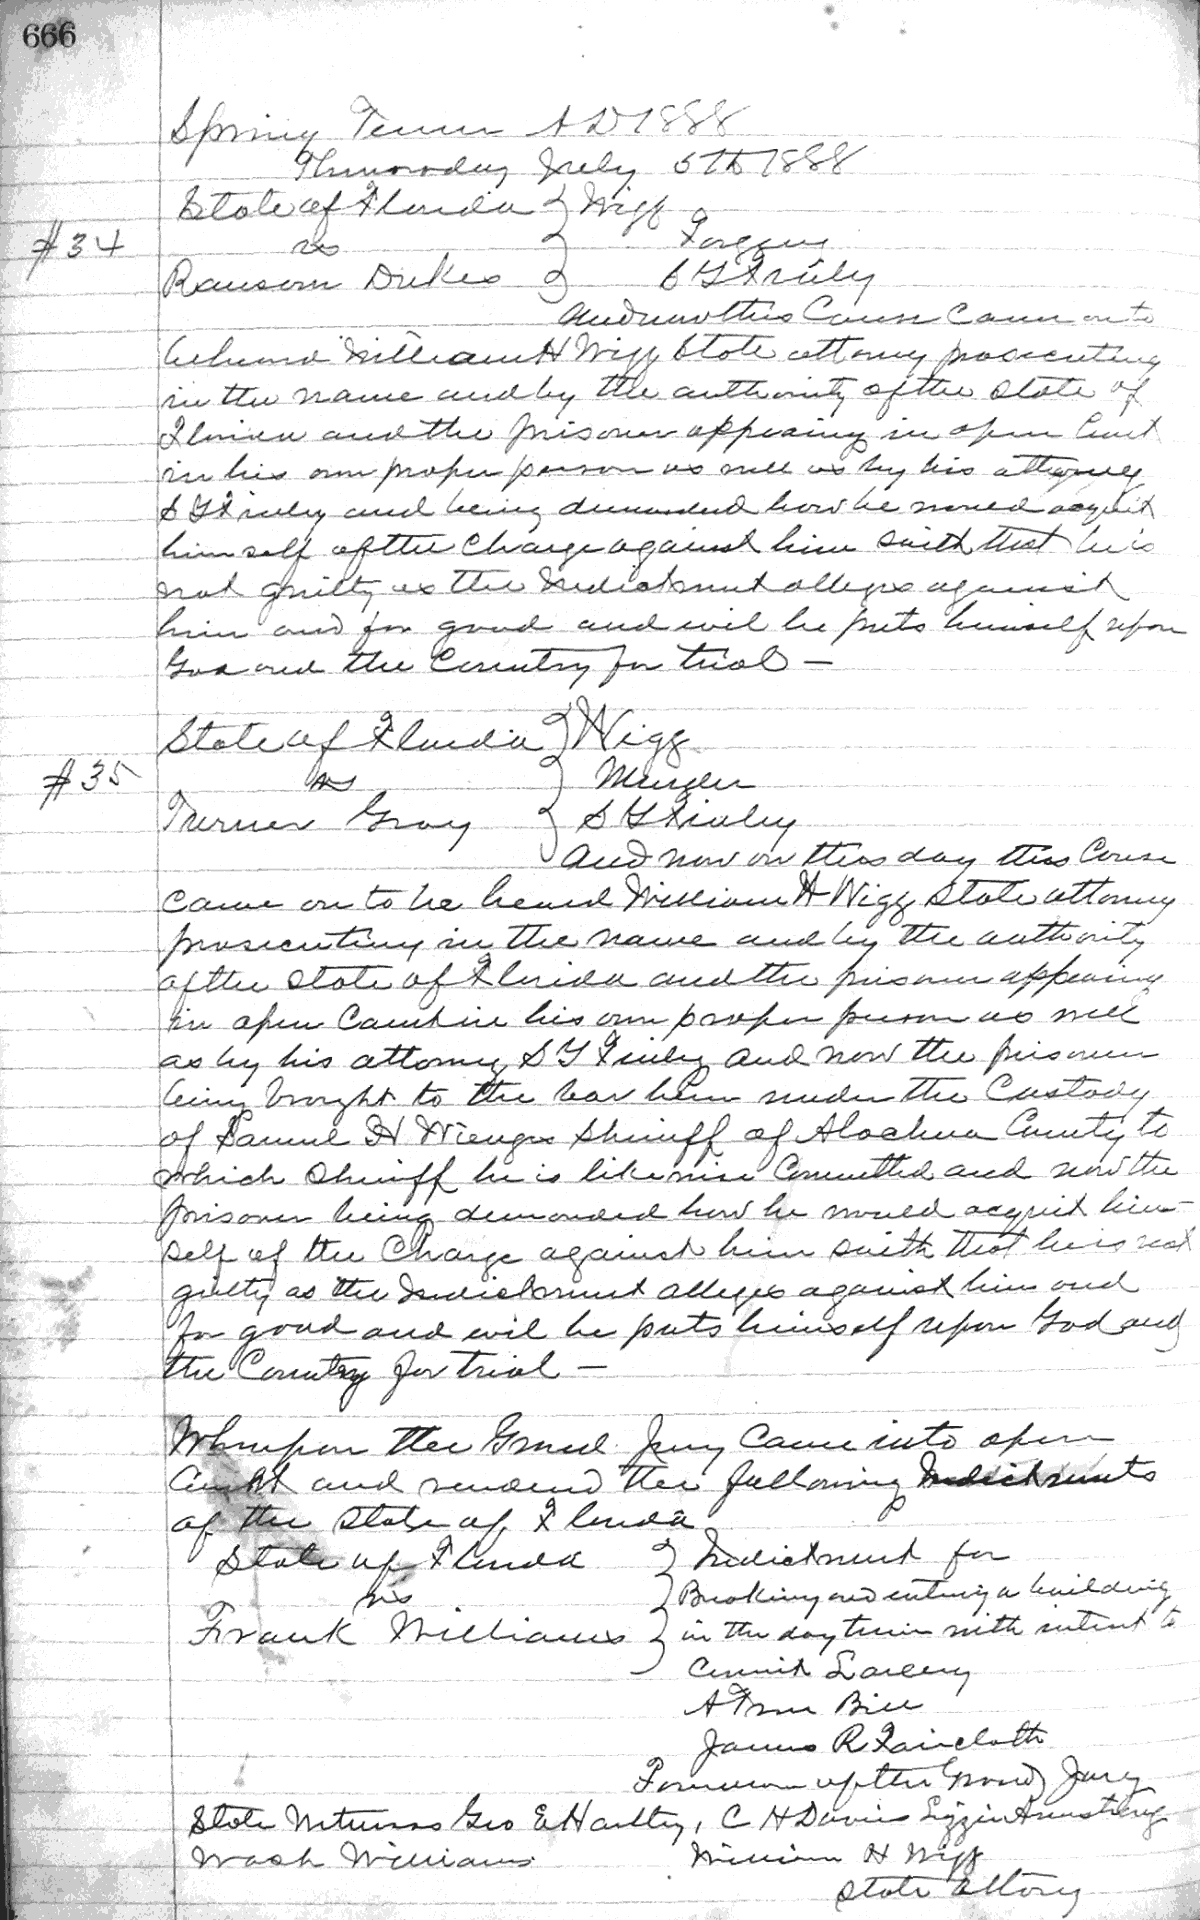 666
Spring Term A D 1888
Thursday July 5th 1888
State of Florida } Wigg
#34 vs } Forgery
Ransom Dukes } S Y Finley
And now this Cause Came on to
be heard William H Wigg State attorney prosecuting
in the name and by the authority of the State of
Florida and the prisoner appearing in open Court
in his own proper person as well as by his attorney
S Y Finley and being demanded how he would acquit
himself of the Charge against him saith that he is
not guilty as the Indictment alleges against
him and for good and evil he puts himself upon
God and the Country for trial —
State of Florida } Wigg
#35 vs } Murder
Turner Gray } S Y Finley
And now on this day this Cause
came on to be heard William H Wigg State attorney
prosecuting in the name and by the authority
of the State of Florida and the prisoner appearing
in open Court in his own proper person as well
as by his attorney S Y Finley and now the prisoner
being brought to the bar here under the Custody
of Samuel H Wienges Sheriff of Alachua County to
which Sheriff he is likewise Committed and now the
prisoner being demanded how he would acquit him-
self of the Charge against him saith that he is not
guilty as the Indictment alleges against him and
for good and evil he puts himself upon God and
the Country for trial —
Whereupon the Grand Jury Came into open
Court and rendered the following Indictments
of the State of Florida
State of Florida } Indictment for
vs } Breaking and entering a building
Frank Williams } in the day time with intent to
Commit Larceny
A True Bill
James R Faircloth
Foreman of the Grand Jury
State Witness Geo E Hartley, C H Davis Lizzie Armstrong
Wash Williams William H Wigg
State Attorny